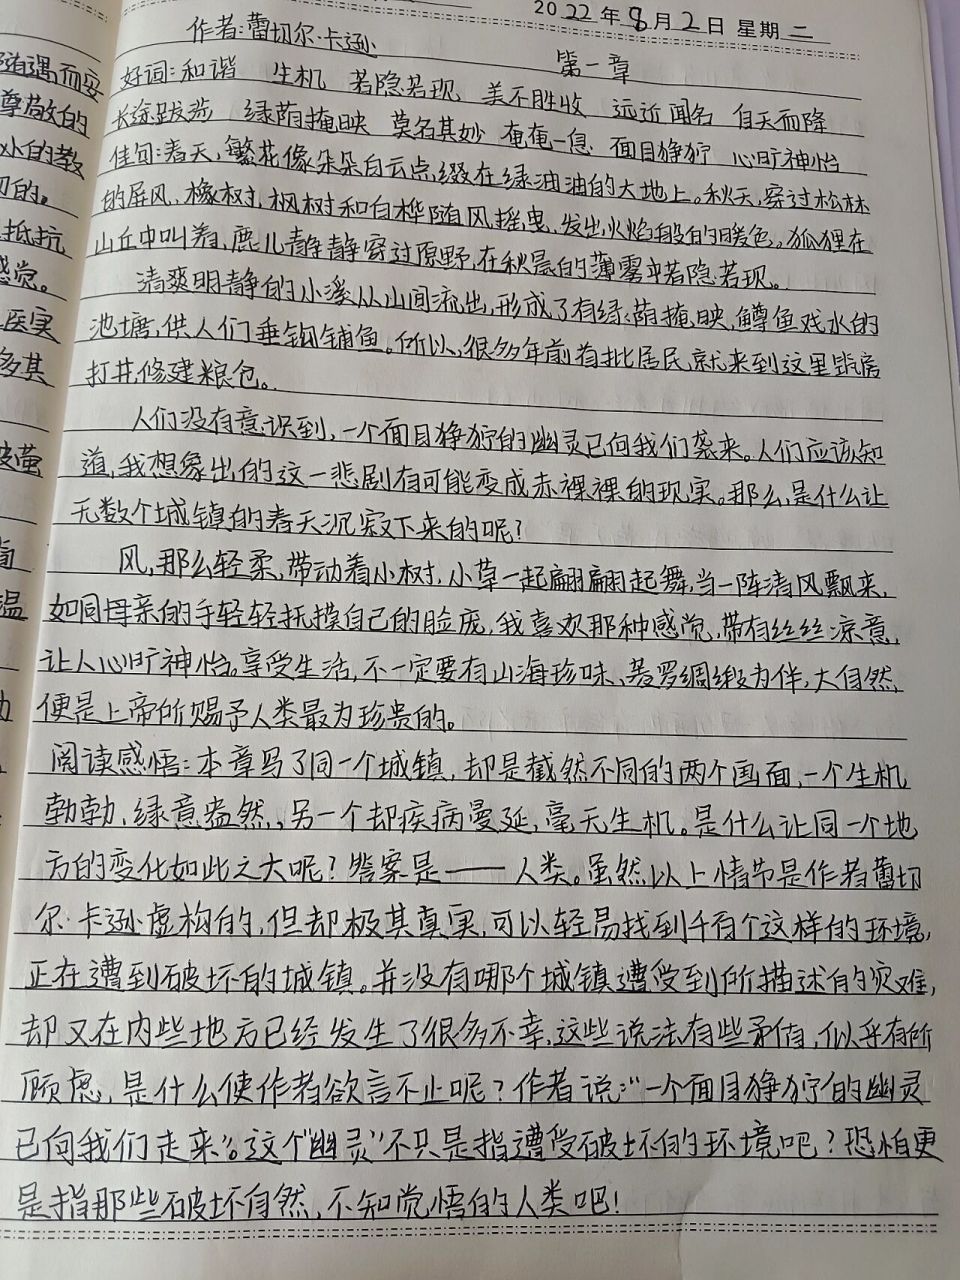 2022年8月2日 星期二
作者:蕾切尔·卡逊
第一章
好词:和谐 生机 若隐若现 美不胜收 远近闻名 自天而降
长途跋涉 绿荫掩映 莫名其妙 奄奄一息 面目狰狞 心旷神怡
佳句:春天,繁花像朵朵白云点缀在绿油油的大地上。秋天,穿过松林
的屏风、橡树,枫树和白桦随风摇曳,发出火焰般的暖色。狐狸在
山丘中叫着,鹿儿静静穿过原野,在秋晨的薄雾中若隐若现。
清爽明静的小溪从山间流出,形成了有绿荫掩映,鳟鱼戏水的
池塘,供人们垂钓铺鱼。所以,很多年前首批居民就来到这里筑房
打井,修建粮仓。
人们没有意识到,一个面目狰狞的幽灵已向我们袭来。人们应该知
道,我想象出的这一悲剧有可能变成赤裸裸的现实。那么,是什么让
无数个城镇的春天沉寂下来的呢?
风,那么轻柔,带动着小树,小草一起翩翩起舞,当一阵清风飘来,
如同母亲的手轻轻抚摸自己的脸庞,我喜欢那种感觉,带有丝丝凉意,
让人心旷神怡。享受生活,不一定要有山海珍味、菱罗绸缎为伴,大自然,
便是上帝所赐予人类最为珍贵的。
阅读感悟:本章写了同一个城镇,却是截然不同的两个画面,一个生机
勃勃,绿意盎然,另一个却疾病曼延,毫无生机。是什么让同一个地
方的变化如此之大呢?答案是——人类。虽然以上情节是作者蕾切
尔·卡逊虚构的,但却极其真实,可以轻易找到千百个这样的环境,
正在遭到破坏的城镇。并没有哪个城镇遭受到所描述的灾难,
却又在内些地方已经发生了很多不幸,这些说法有些矛盾,似乎有所
顾虑,是什么使作者欲言不止呢?作者说:"一个面目狰狞的幽灵
已向我们走来"。这个"幽灵"不只是指遭受破坏的环境吧?恐怕更
是指那些破坏自然,不知觉悟的人类吧!
随遇而安
尊敬的
小的教
切的。
抵抗
感觉。
医家
多其
被萤
温